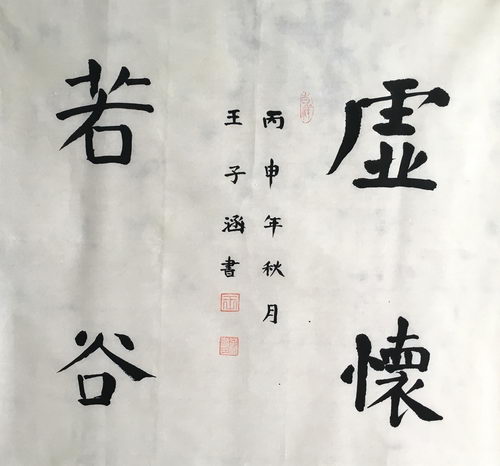 虚懷
若谷
丙申年秋月
王子涵書